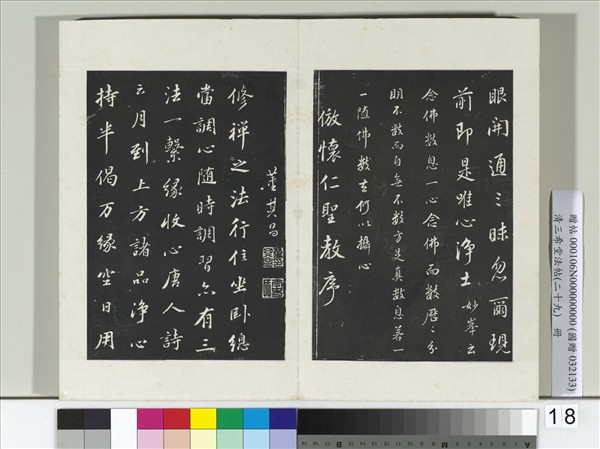 眼開通三昧忽爾現
前即是唯心淨土 妙峯云
念佛數息一心念佛而數歷〻分
明不數而自無不數方是真數息若一
一隨佛數去何以攝心
倣懷仁聖教序
董其昌
修禪之法行住坐卧總
當調心隨時調習亦有三
法一繫緣收心唐人詩
云月到上方諸品淨心
持半偈万緣空日用
贈帖 000106N000000000 (國贈 032133)
清三希堂法帖(二十九) 冊
18